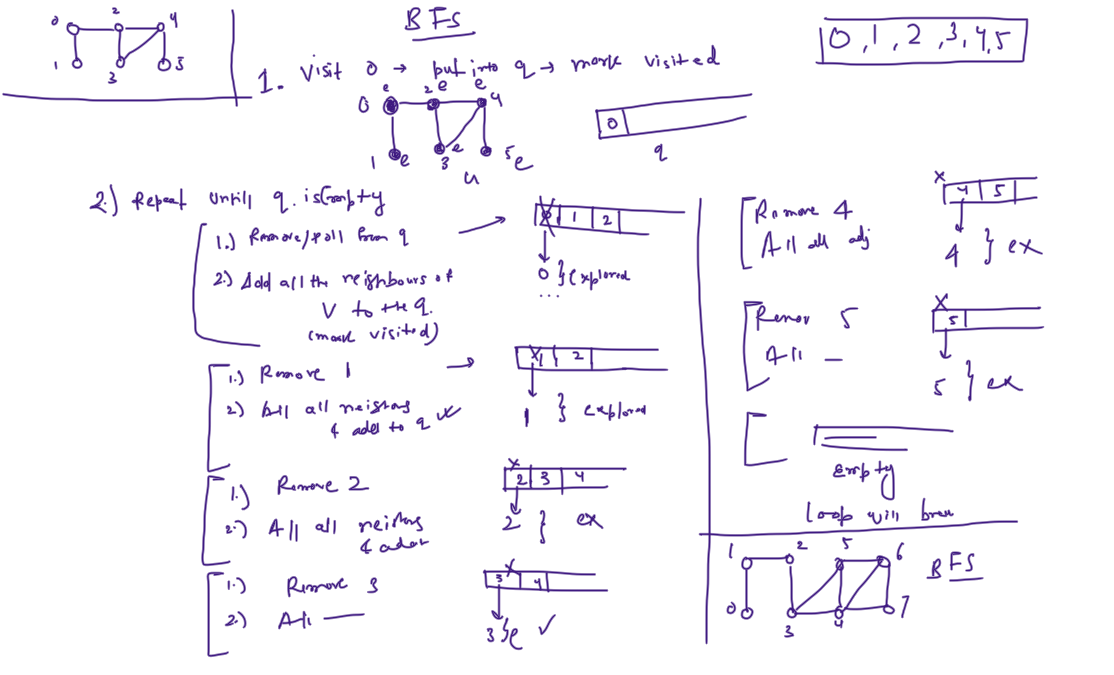 0 2 4
1 3 5
BFS
0, 1, 2, 3, 4, 5
1. Visit 0 → put into q → mark visited
0 e 2 e e 4
1 e 3 e 5 e
u
0
q
2.) Repeat Untill q. isEmpty
1.) Remove/poll from q →
2.) Add all the neighbours of
V to the q.
(mark visited)
0 1 2
0 } explored
...
1.) Remove 1 →
2) All all neighbors
& added to q
1 2
1 } explored
1.) Remove 2
2.) All all neighbors
& added
2 3 4
2 } ex
1.) Remove 3
2.) All —
3 4
3 } e ✓
Remove 4
All all adj
x
4 5
4 } ex
Remov 5
All —
x
5
5 } ex
Empty
loop will brea
1 2 5 6
BFS
0 3 4 7